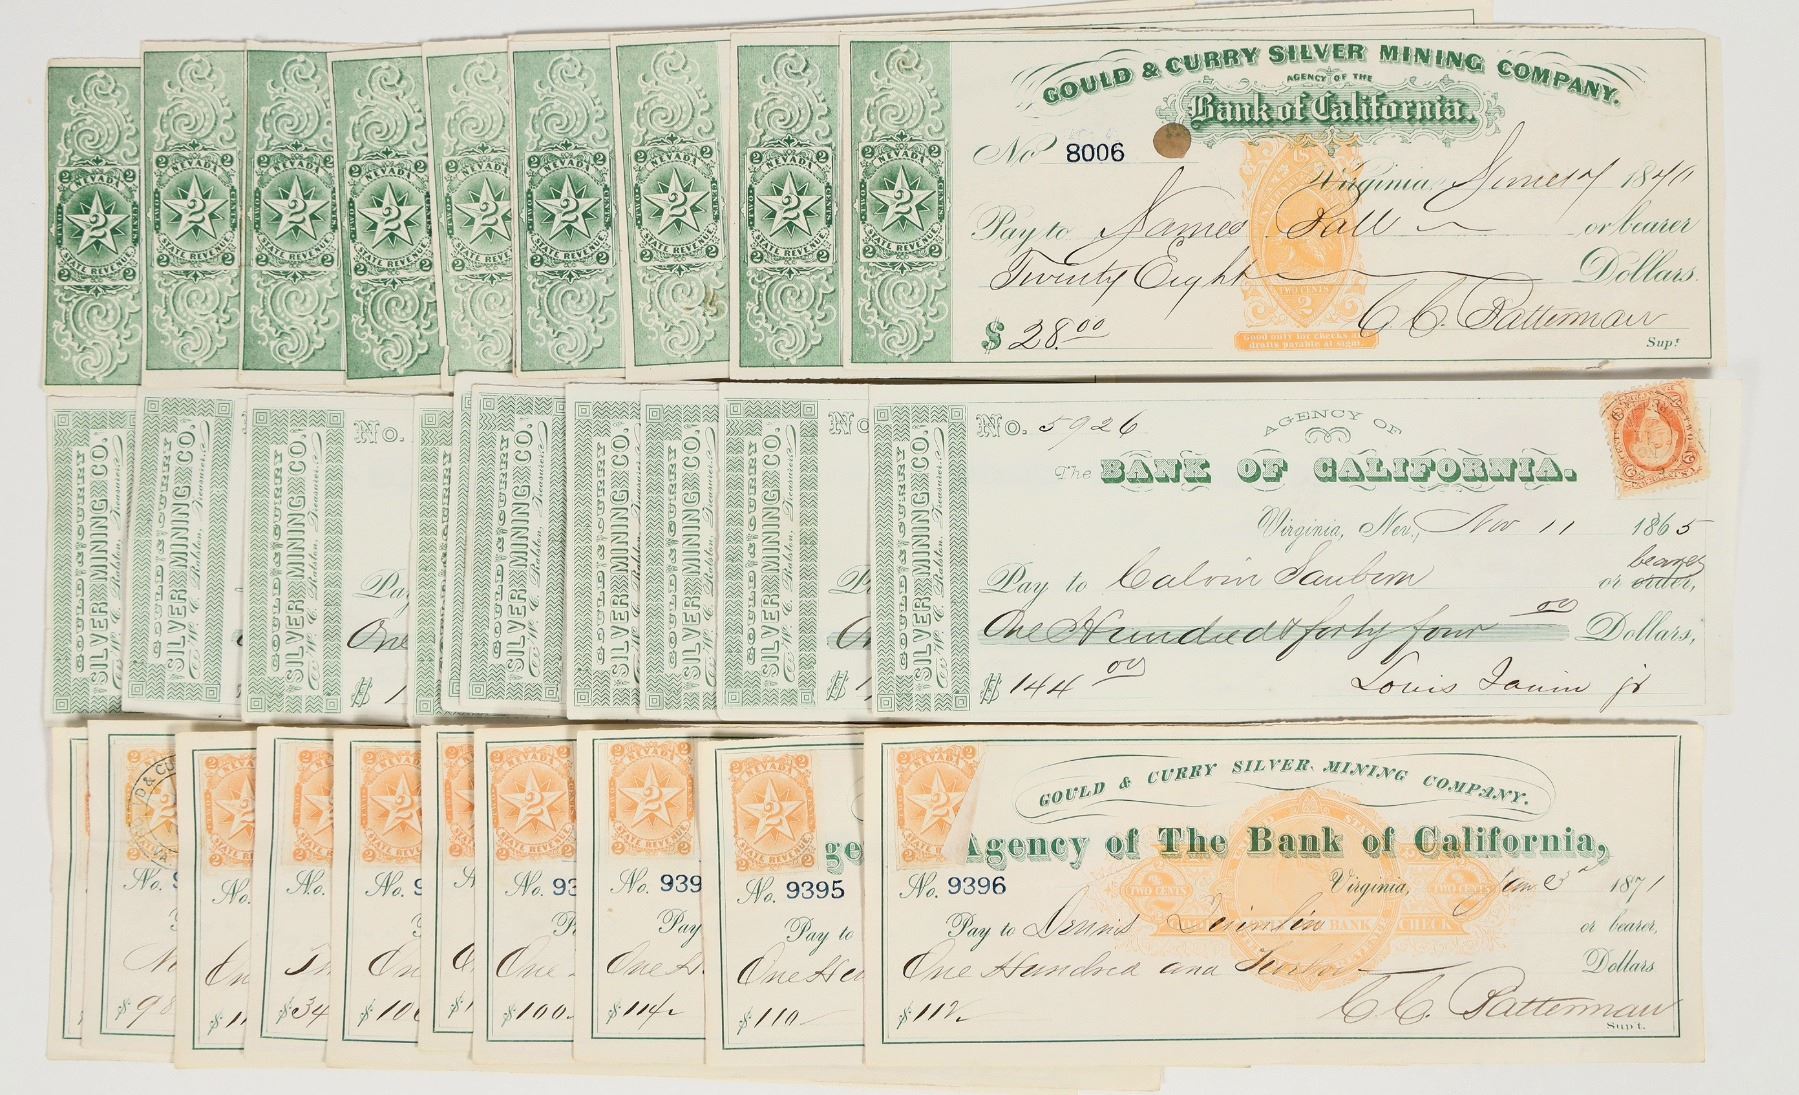 GOULD & CURRY SILVER MINING COMPANY.
AGENCY OF THE
Bank of California.
No 8006
Virginia, 1870
Pay to James Ball or bearer
Twenty Eight Dollars.
$ 28.00 C. C. Batterman
Supt
TWO CENTS
2
Good only for checks &
drafts payable at sight.
2 NEVADA 2
TWO 2 CENTS
STATE REVENUE
2 2
GOULD & CURRY
SILVER MINING CO.
W. C. Ralston, Treasurer.
No. 5926
AGENCY OF
The BANK OF CALIFORNIA.
Virginia, Nev., Nov 11 1865
bearer
Pay to Calvin Sanborn or order,
One Hundred & forty four 00 Dollars,
$ 144 00 Louis Janin jr
GOULD & CURRY SILVER MINING COMPANY.
Agency of The Bank of California,
No. 9396 Virginia, Jan 3rd 1871
Pay to Dennis or bearer,
One Hundred and Twelve Dollars
$ 112 C. C. Batterman
Supt.
TWO CENTS
BANK CHECK
2 NEVADA 2
TWO 2 CENTS
STATE REVENUE
No. 9395
Pay to
One Hu
$ 110
No. 939
Pay
One H
$ 114
No. 93
One
$ 100
No. 9
On
$ 100
No.
$ 34
No.
On
$ 11
No. 9
$ 98
No.
Pay
One
$ 1